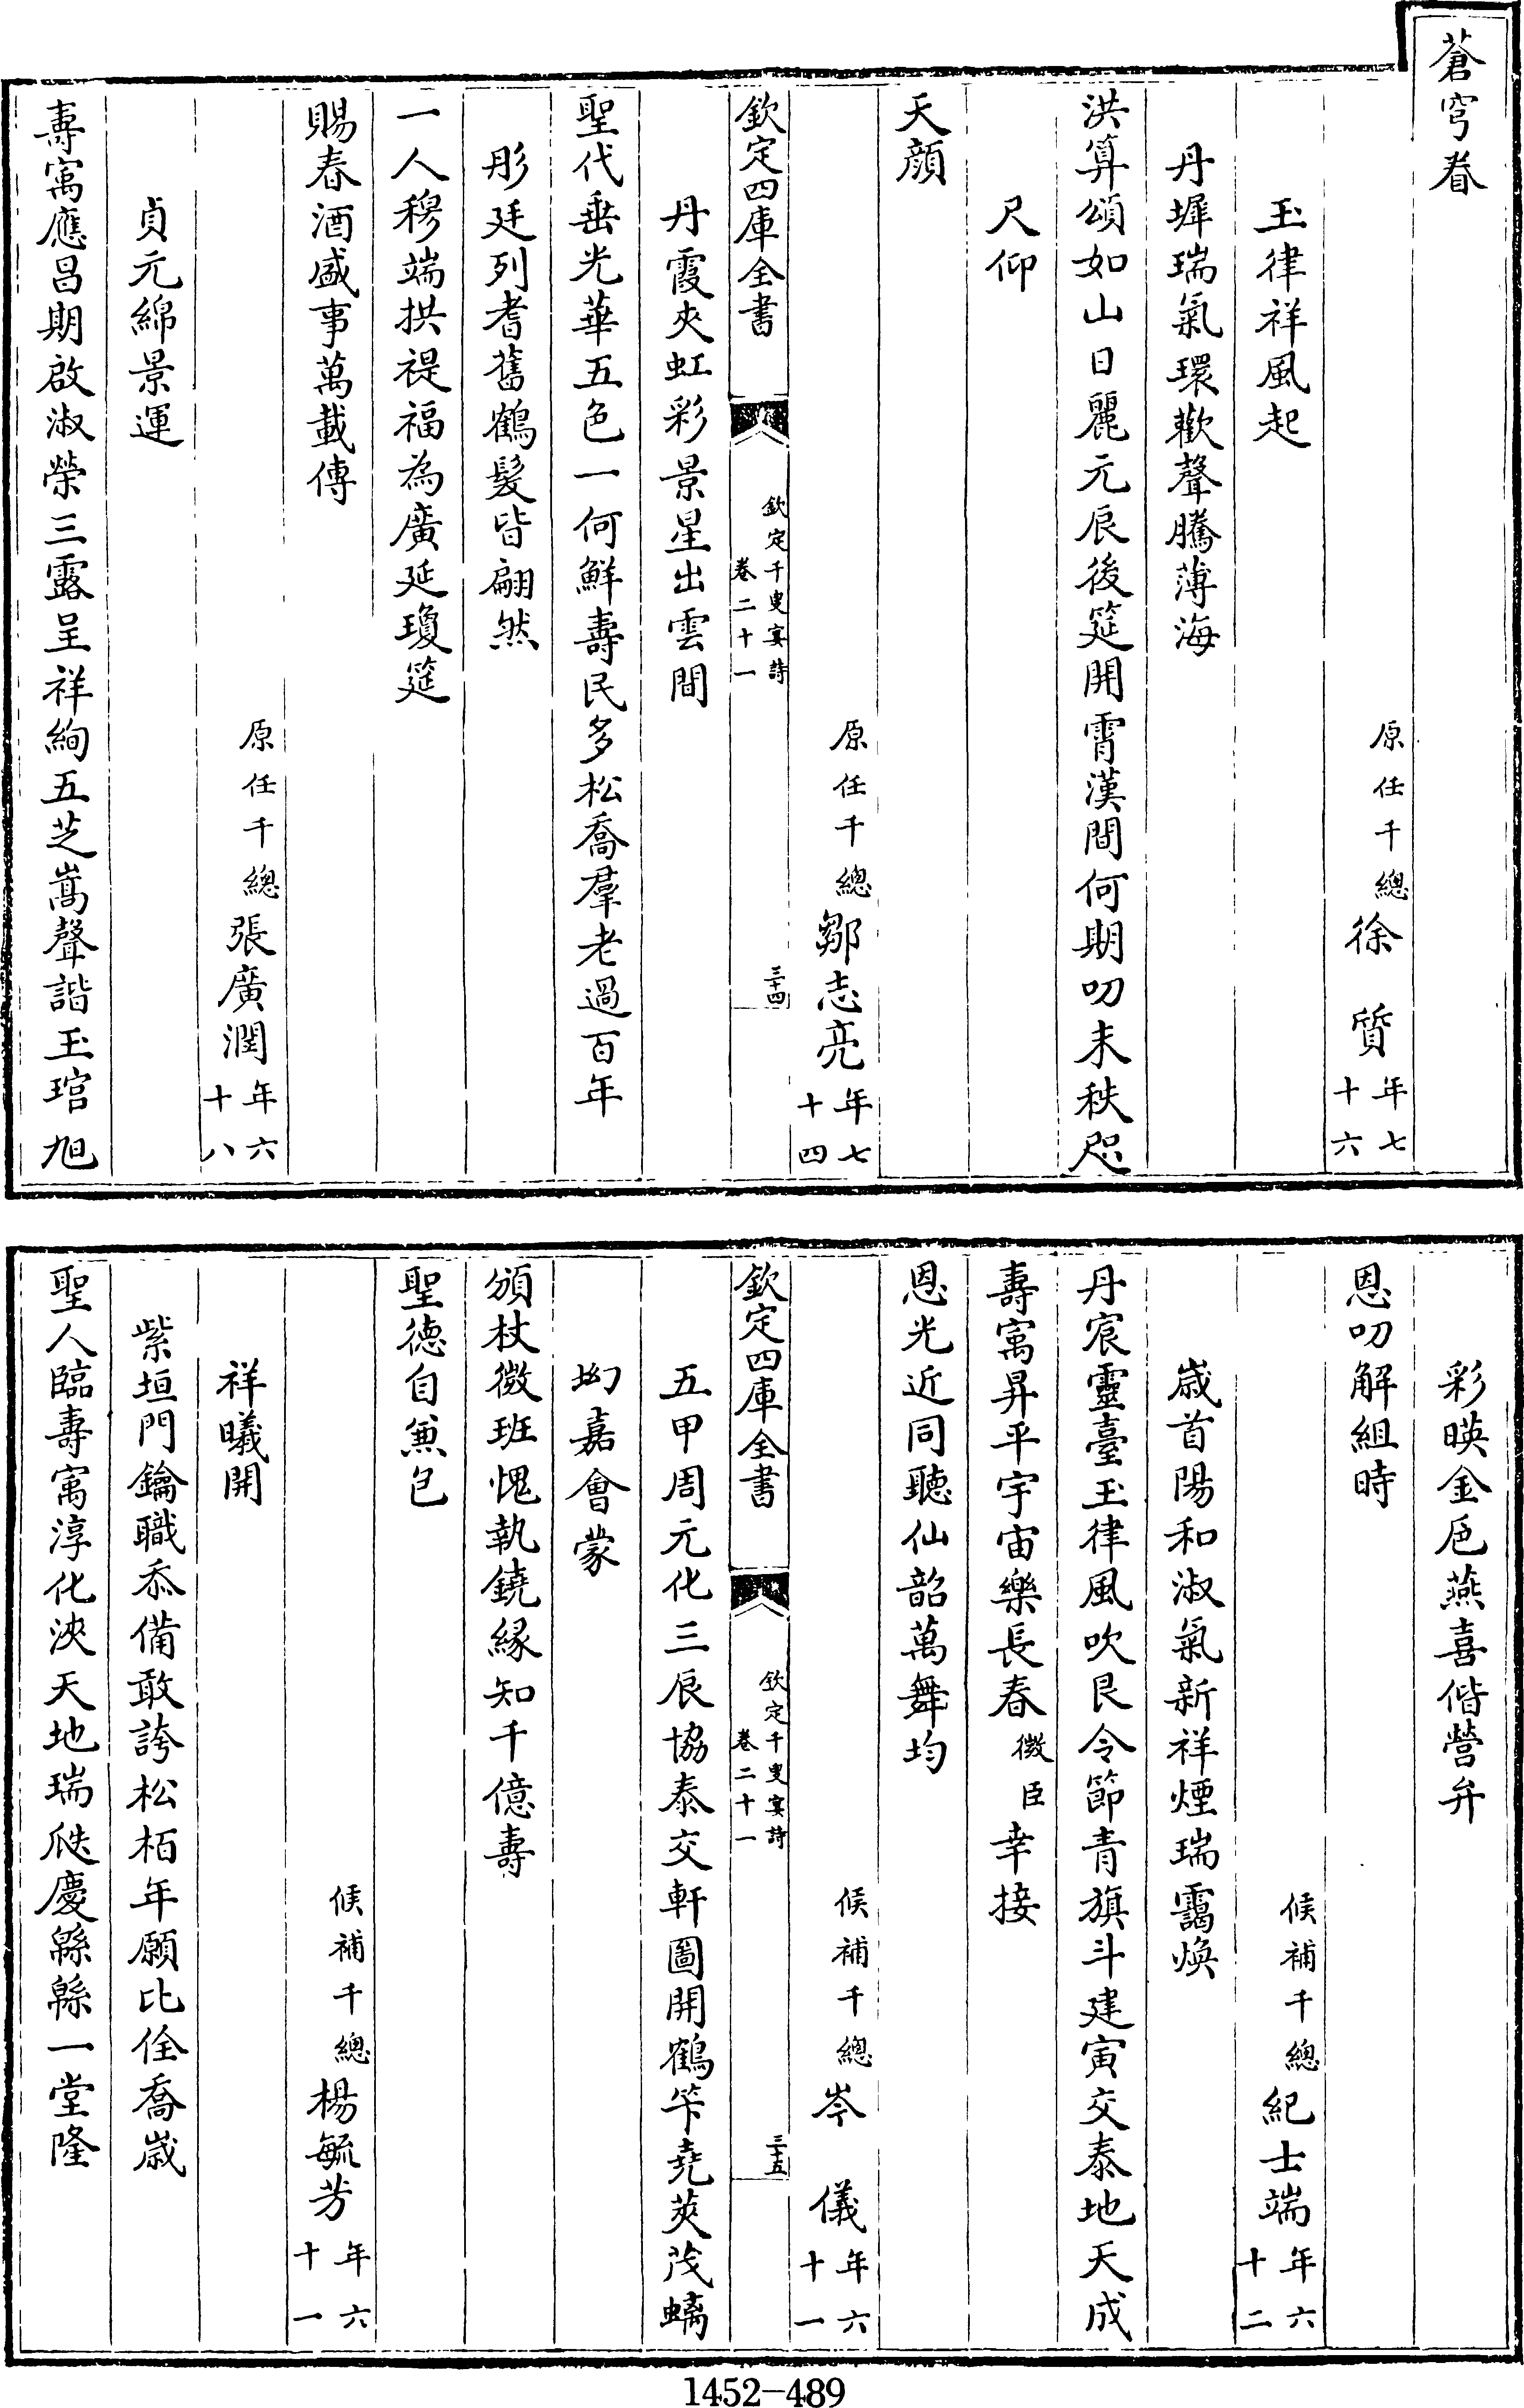 蒼穹眷
原任千總徐　質年七十六
玉律祥風起
丹墀瑞氣環歡聲騰薄海
洪算頌如山日麗元辰後筵開霄漢間何期叨末秩咫
尺仰
天顔
原任千總鄒志亮年七十四
欽定四庫全書
欽定千叟宴詩
卷二十一
三十四
丹霞夾虹彩景星出雲間
聖代垂光華五色一何鮮壽民多松喬羣老過百年
彤廷列耆舊鶴髮皆翩然
一人穆端拱禔福為廣延瓊筵
賜春酒盛事萬載傳
原任千總張廣潤年六十八
貞元綿景運
壽㝢應昌期啟淑榮三露呈祥絢五芝嵩聲諧玉琯旭
彩暎金卮燕喜偕營弁
恩叨解組時
候補千總紀士端年六十二
歲首陽和淑氣新祥煙瑞靄煥
丹宸靈臺玉律風吹艮令節青旗斗建寅交泰地天成
壽㝢昇平宇宙樂長春微臣幸接
恩光近同聽仙韶萬舞均
候補千總岑　儀年六十一
欽定四庫全書
欽定千叟宴詩
卷二十一
三十五
五甲周元化三辰協泰交軒圖開鶴筭堯莢茂螭
坳嘉會蒙
頒杖微班愧執鐃緣知千億壽
聖德自兼包
候補千總楊毓芳年六十一
祥曦開
紫垣門鑰職忝備敢誇松柏年願比佺喬歲
聖人臨壽㝢淳化浹天地瑞瓞慶緜緜一堂隆
1452-489